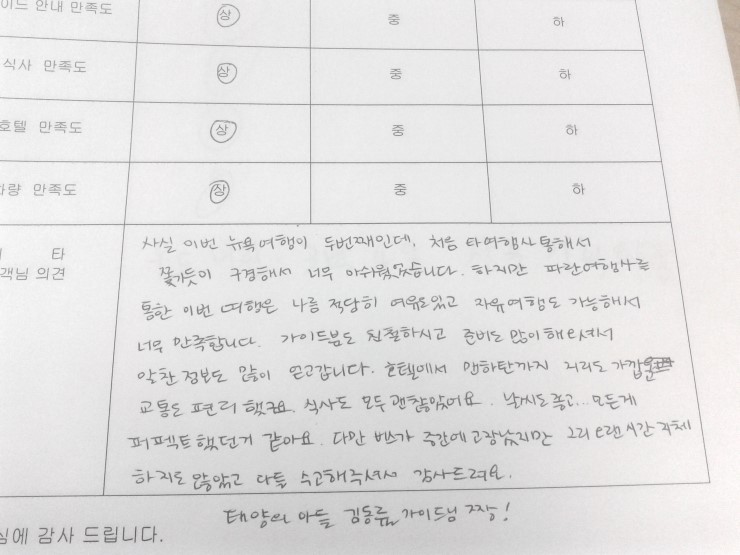 이드 안내 만족도 상 중 하
식사 만족도 상 중 하
호텔 만족도 상 중 하
차량 만족도 상 중 하
타
객님 의견
사실 이번 뉴욕여행이 두번째인데, 처음 타여행사 통해서
쫓기듯이 구경해서 너무 아쉬웠었습니다. 하지만 파란여행사를
통한 이번 여행은 나름 적당히 여유도있고 자유여행도 가능해서
너무 만족합니다. 가이드분도 친절하시고 준비도 많이해오셔서
알찬 정보도 많이 얻고갑니다. 호텔에서 맨하탄까지 거리도 가깝
교통도 편리했구요. 식사도 모두 괜찮았어요. 날씨도 좋고... 모든게
퍼펙트했던거 같아요. 다만 버스가 중간에 고장났지만 그리 오랜시간 지체
하지도 않았고 다들 수고해주셔서 감사드려요.
태양의 아들 가이드님 짱!
심에 감사 드립니다.